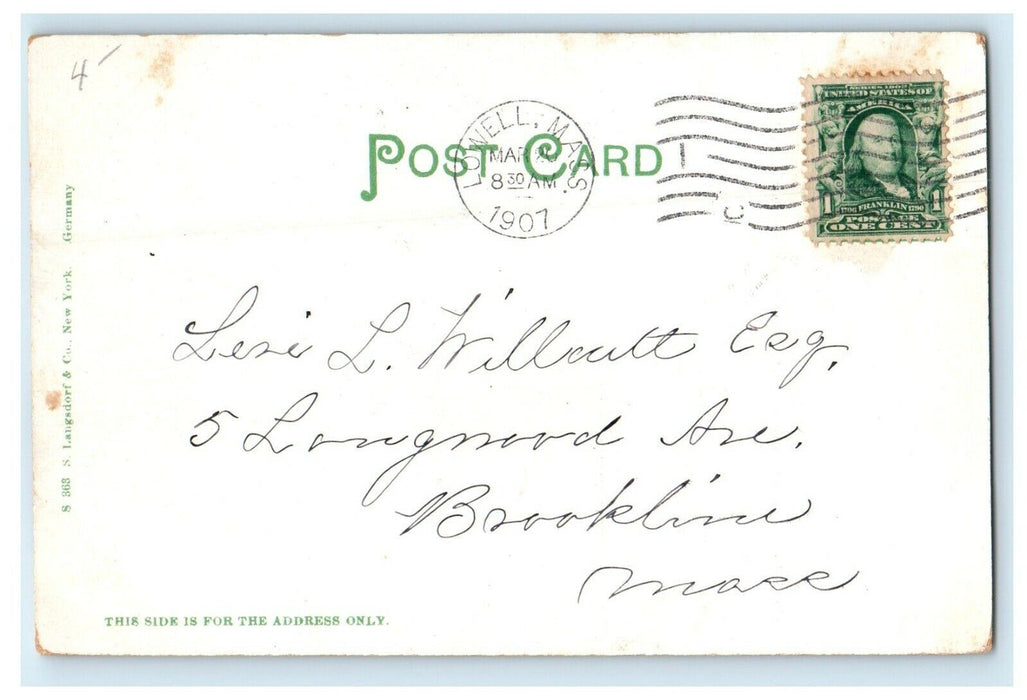 4
POST CARD
LOWELL, MASS.
MAR
8 30 AM
1907
C
SERIES 1902
UNITED STATES OF
AMERICA
1 1706 FRANKLIN 1790 1
POSTAGE
ONE CENT
Levi L. Willcutt Esq.
5 Longwood Ave.
Brookline
Mass
S 363 S. Langsdorf & Co., New York. Germany
THIS SIDE IS FOR THE ADDRESS ONLY.